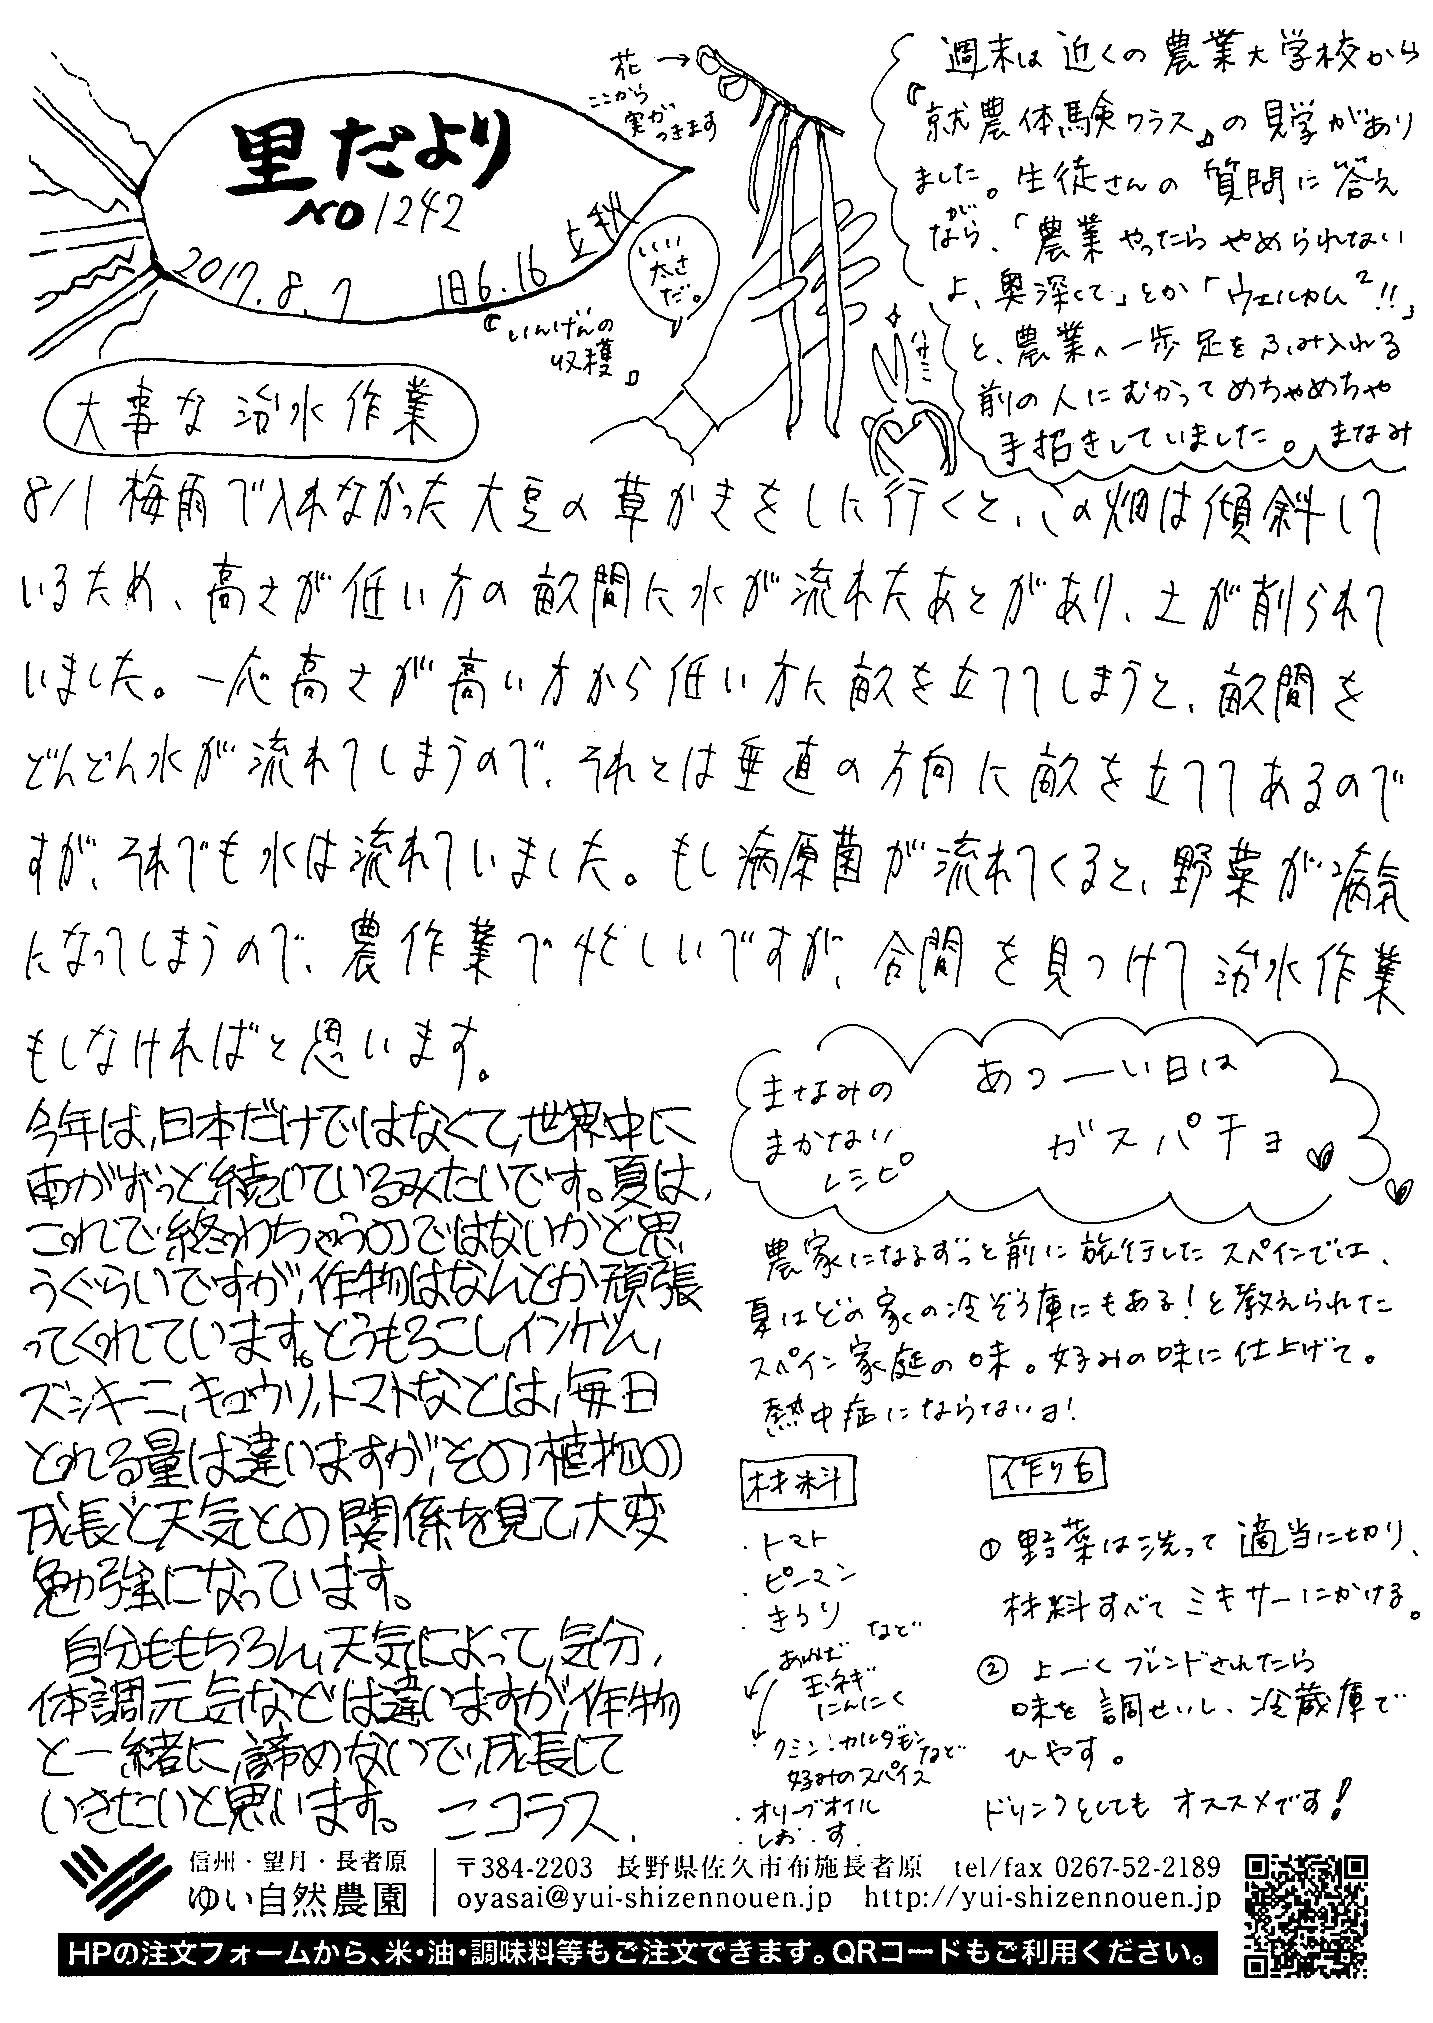 里だより
NO 1242
2017.8.7 旧6.16 立秋
花→
ここから
実が
つきます
いい
太さ
だ。
『いんげんの
収穫』
ハサミ
週末は近くの農業大学校から
『就農体験クラス』の見学があり
ました。生徒さんの質問に答え
ながら、「農業やったらやめられない
よ、奥深くて」とか「ウェルカム²!!」
と、農業へ一歩足をふみ入れる
前の人にむかってめちゃめちゃ
手招きしていました。 まなみ
大事な治水作業
8/1 梅雨で入れなかった大豆の草かきをしに行くと、この畑は傾斜して
いるため、高さが低い方の畝間に水が流れたあとがあり、土が削られて
いました。一応高さが高い方から低い方に畝を立ててしまうと、畝間を
どんどん水が流れてしまうので、それとは垂直の方向に畝を立ててあるので
すが、それでも水は流れていました。もし病原菌が流れてくると、野菜が病気
になってしまうので、農作業で忙しいですが、合間を見つけて治水作業
もしなければと思います。
今年は、日本だけではなくて、世界中に
雨がずっと続いているみたいです。夏は、
これで終わちゃうのではないかと思
うぐらいですが、作物はなんとか頑張
ってくれています。とうもろこし、インゲン、
ズッキーニ、キュウリ、トマトなどは、毎日
とれる量は違いますが、その植物の
成長と天気との関係を見て、大変
勉強になっています。
自分ももちろん、天気によって、気分、
体調、元気などは違いますが、作物
と一緒に、諦めないで、成長して
いきたいと思います。 ニコラス.
まなみの
まかない
レシピ
あつーい日は
ガスパチョ
農家になるずっと前に旅行したスペインでは、
夏はどの家の冷ぞう庫にもある!と教えられた
スペイン家庭の味。好みの味に仕上げて。
熱中症にならないヨ!
材料
・トマト
・ピーマン
・きうり など
あれば
玉ネギ
にんにく
クミン・カルダモンなど
好みのスパイス
・オリーブオイル
・しお・す・
作り方
① 野菜は洗って適当に切り、
材料すべてミキサーにかける。
② よーくブレンドされたら
味を調せいし、冷蔵庫で
ひやす。
ドリンクとしてもオススメです!
信州・望月・長者原
ゆい自然農園
〒384-2203 長野県佐久市布施長者原 tel/fax 0267-52-2189
oyasai@yui-shizennouen.jp http://yui-shizennouen.jp
HPの注文フォームから、米・油・調味料等もご注文できます。QRコードもご利用ください。